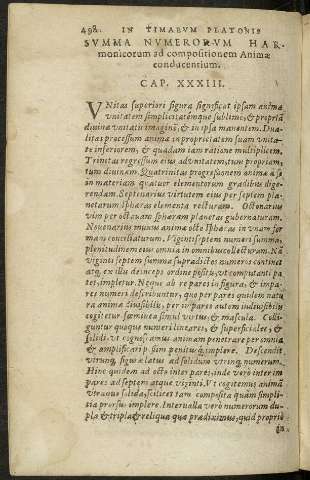 498. IN TIMAEUM PLATONIS
SVMMA NVMERORVM HAR-
monicorum ad compositionem Animæ
conducentium.
CAP. XXXIII.
VNitas superiori figura significat ipsam animæ
vnitatem simplicitatémque sublimẽ, & propriã
diuinæ vnitatis imaginẽ, & in ipsa manentem. Dua-
litas processum animæ in proprietatem suam vnita-
te inferiorem, & quadam iam ratione multiplicem.
Trinitas regressum eius ad vnitatem, tum propriam,
tum diuinam. Quatrinitas progressionem animæ à se
in materiam quatuor elementorum gradibus dige-
rendam. Septenarius virtutem eius per septem pla-
netarum sphæras elementa recturam. Octonarius
vim per octauam sphæram planetas gubernaturam.
Nouenarius munus animæ octo sphæras in vnam for-
mam conciliaturum. Vigintiseptem numeri summa,
plenitudinem eius omnia in omnibus collecturam. Nã
viginti septem summa supradictos numeros continet
atq; ex illu deinceps ordine positu, vt computanti pa-
tet, impletur. Neque ab re pares in figura, & impa-
res numeri describuntur, quo per pares quidem natu
ra animæ diuisibilis: per impares autem indiuisibilis
cogitetur fœminea simul virtus, & mascula. Colli-
guntur quoque numeri lineares, & superficiales, &
solidi. vt cognoscamus animam penetrare per omnia
& amplificari per sim penitus & implere. Descendit
vtrunq; figuræ latus ad solidum vtrinq; numerum.
Hinc quidem ad octo inter pares, inde verò inter im
pares ad septem atque viginti. Vt cogitemus animã
vtranque solida, scilicet tam composita quàm simpli-
cia prorsus implere. Interualla verò numerorum du-
pla & tripla & reliqua quæ prædiximus, quid propriè